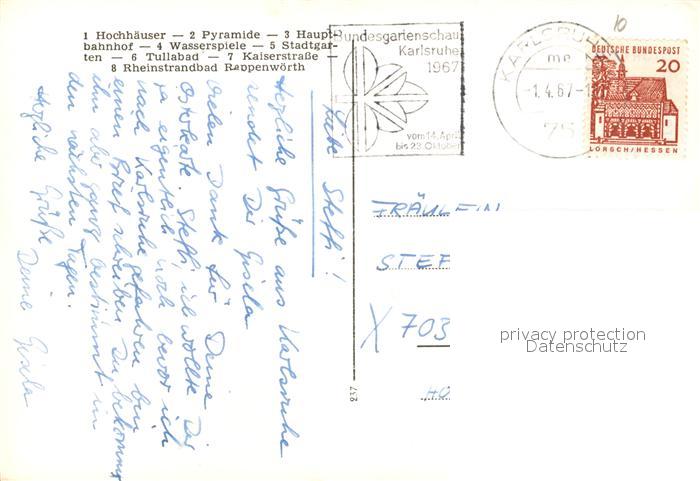 1 Hochhäuser — 2 Pyramide — 3 Haupt-
bahnhof — 4 Wasserspiele — 5 Stadtgar-
ten — 6 Tullabad — 7 Kaiserstraße —
8 Rheinstrandbad Rappenwörth
Bundesgartenschau
Karlsruhe
1967
vom 14. April
bis 23. Oktober
KARLSRUHE
me
-1.4.67-1
75
10
DEUTSCHE BUNDESPOST
20
LORSCH/HESSEN
Liebe Steffi!
Herzliche Grüße aus Karlsruhe
sendet Dir Gisela
Vielen Dank für Deine
Postkarte. Steffi, ich wollte Dir
ja eigentlich noch bevor ich
nach Karlsruhe gefahren bin
einen Brief schreiben. Du bekommst
ihn aber ganz bestimmt in
den nächsten Tagen.
Herzliche Grüße
Deine Gisela
FRÄULEIN
STEF
X 703
HO
237
privacy protection
Datenschutz